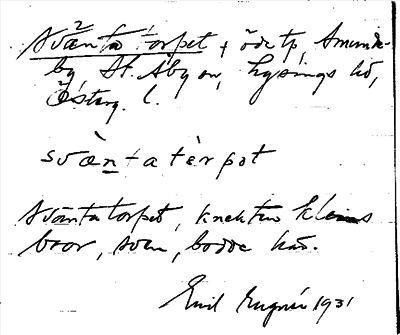 Svänta torpet, ödetp, Amunde-
by, St. Åby sn, Lysings hd,
Österg. l.
svæntatèrpət
Sväntatorpet, knekten Klens
bror, Sven, bodde här.
Emil 1931